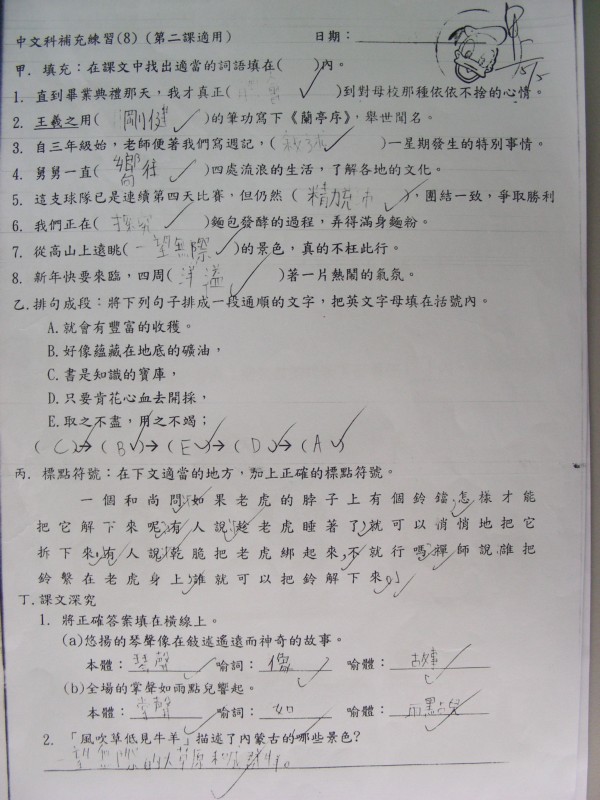 中文科補充練習(8) (第二課適用) 日期：
15/2
甲. 填充：在課文中找出適當的詞語填在( )內。
1. 直到畢業典禮那天，我才真正( )到對母校那種依依不捨的心情。
2. 王羲之用( 剛健 )的筆功寫下《蘭亭序》，舉世聞名。
3. 自三年級始，老師便著我們寫週記，( 敍述 )一星期發生的特別事情。
4. 舅舅一直( 嚮往 )四處流浪的生活，了解各地的文化。
5. 這支球隊已是連續第四天比賽，但仍然 ( 精力充沛 )，團結一致，爭取勝利
6. 我們正在( 探究 )麵包發酵的過程，弄得滿身麵粉。
7. 從高山上遠眺( 一望無際 )的景色，真的不枉此行。
8. 新年快要來臨，四周( 洋溢 )著一片熱鬧的氣氛。
乙.排句成段：將下列句子排成一段通順的文字，把英文字母填在括號內。
A.就會有豐富的收穫。
B.好像蘊藏在地底的礦油，
C.書是知識的寶庫，
D.只要肯花心血去開採，
E.取之不盡，用之不竭；
( C )→( B )→( E )→( D )→( A )
丙. 標點符號：在下文適當的地方，加上正確的標點符號。
一個和尚問 如果老虎的脖子上有個鈴鐺 怎樣才能
把它解下來呢 有人說 趁老虎睡著了 就可以悄悄地把它
拆下來 有人說 乾脆把老虎綁起來 不就行嗎 禪師說 誰把
鈴繫在老虎身上 誰就可以把鈴解下來
丁.課文深究
1. 將正確答案填在橫線上。
(a)悠揚的琴聲像在敍述遙遠而神奇的故事。
本體：琴聲 喻詞：像 喻體：故事
(b)全場的掌聲如雨點兒響起。
本體：掌聲 喻詞：如 喻體：雨點兒
2. 「風吹草低見牛羊」描述了內蒙古的哪些景色?
一望無際的大草原和成群牛羊。